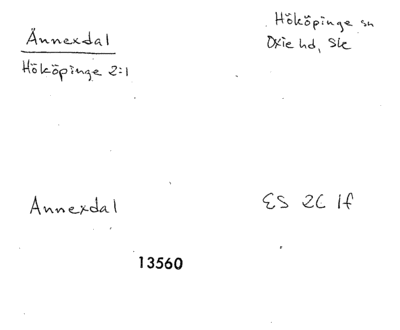 Ännexdal
Hököpinge sn
Oxie hd, Sk
Hököpinge 2:1
Annexdal
ES 2C 1f
13560